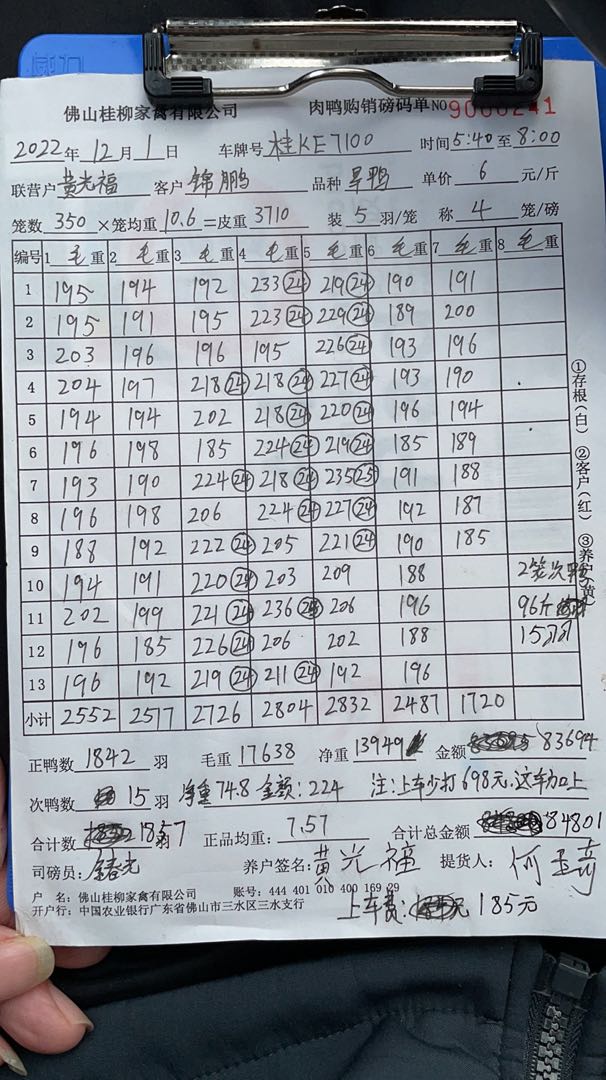 佛山桂柳家禽有限公司 肉鸭购销磅码单 NO 9000241
2022年12月1日 车牌号 桂KE7100 时间5:40至8:00
联营户 黄光福 客户 锦鹏 品种 旱鸭 单价 6 元/斤
笼数 350 ×笼均重 10.6 =皮重 3710 装 5 羽/笼 称 4 笼/磅
编号 1 毛重 2 毛重 3 毛重 4 毛重 5 毛重 6 毛重 7 毛重 8 毛重
1 195 194 192 233㉔ 219㉔ 190 191
2 195 191 195 223㉔ 229㉔ 189 200
3 203 196 196 195 226㉔ 193 196
4 204 197 218㉔ 218㉔ 227㉔ 193 190
5 194 194 202 218㉔ 220㉔ 196 194
6 196 198 185 224㉔ 219㉔ 185 189
7 193 190 224㉔ 218㉔ 235㉕ 191 188
8 196 198 206 224㉔ 227㉔ 192 187
9 188 192 222㉔ 205 221㉔ 190 185
10 194 191 220㉔ 203 209 188 2笼次
11 202 199 221㉔ 236㉔ 206 196 96斤
12 196 185 226㉔ 206 202 188 15羽
13 196 192 219㉔ 211㉔ 192 196
小计 2552 2517 2726 2804 2832 2487 1720
①存根(白) ②客户(红) ③养户(黄)
正鸭数 1842 羽 毛重 17638 净重 13949 金额 83694
次鸭数 15羽 净重74.8 金额:224 注:上车少打698元,这车加上
合计数 1857 羽 正品均重: 7.57 合计总金额 84801
司磅员: 养户签名: 黄光福 提货人:
户 名: 佛山桂柳家禽有限公司 账号: 444 401 010 400 169 29
开户行: 中国农业银行广东省佛山市三水区三水支行
上车费: 185元